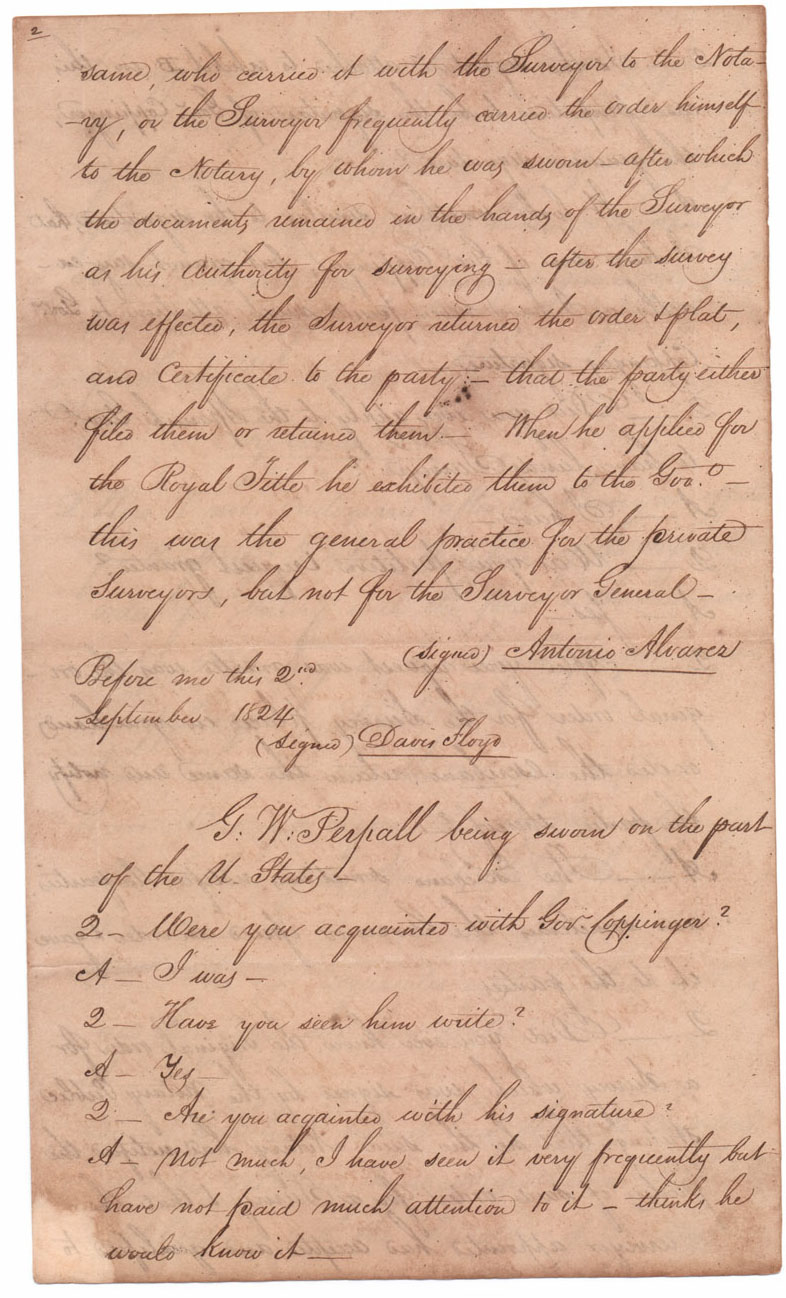 2
same, who carried it with the Surveyor to the Nota-
-ry, or the Surveyor frequently carried the order himself
to the Notary, by whom he was sworn - after which
the documents remained in the hands of the Surveyor
as his authority for surveying - after the survey
was effected, the Surveyor returned the order & plat,
and Certificate to the party; - that the party either
filed them or retained them - When he applied for
the Royal Title he exhibited them to the Gov.o -
this was the general practice for the private
Surveyors, but not for the Surveyor General -
(signed) Antonio Alvarez
Before me this 2nd
September 1824
(signed) Davis Floyd
G. W. Perpall being sworn on the part
of the U. States -
Q - Were you acquainted with Gov. Coppinger?
A - I was -
Q - Have you seen him write?
A - Yes -
Q - Are you acqainted with his signature?
A - Not much, I have seen it very frequently but
have not paid much attention to it - thinks he
would know it -